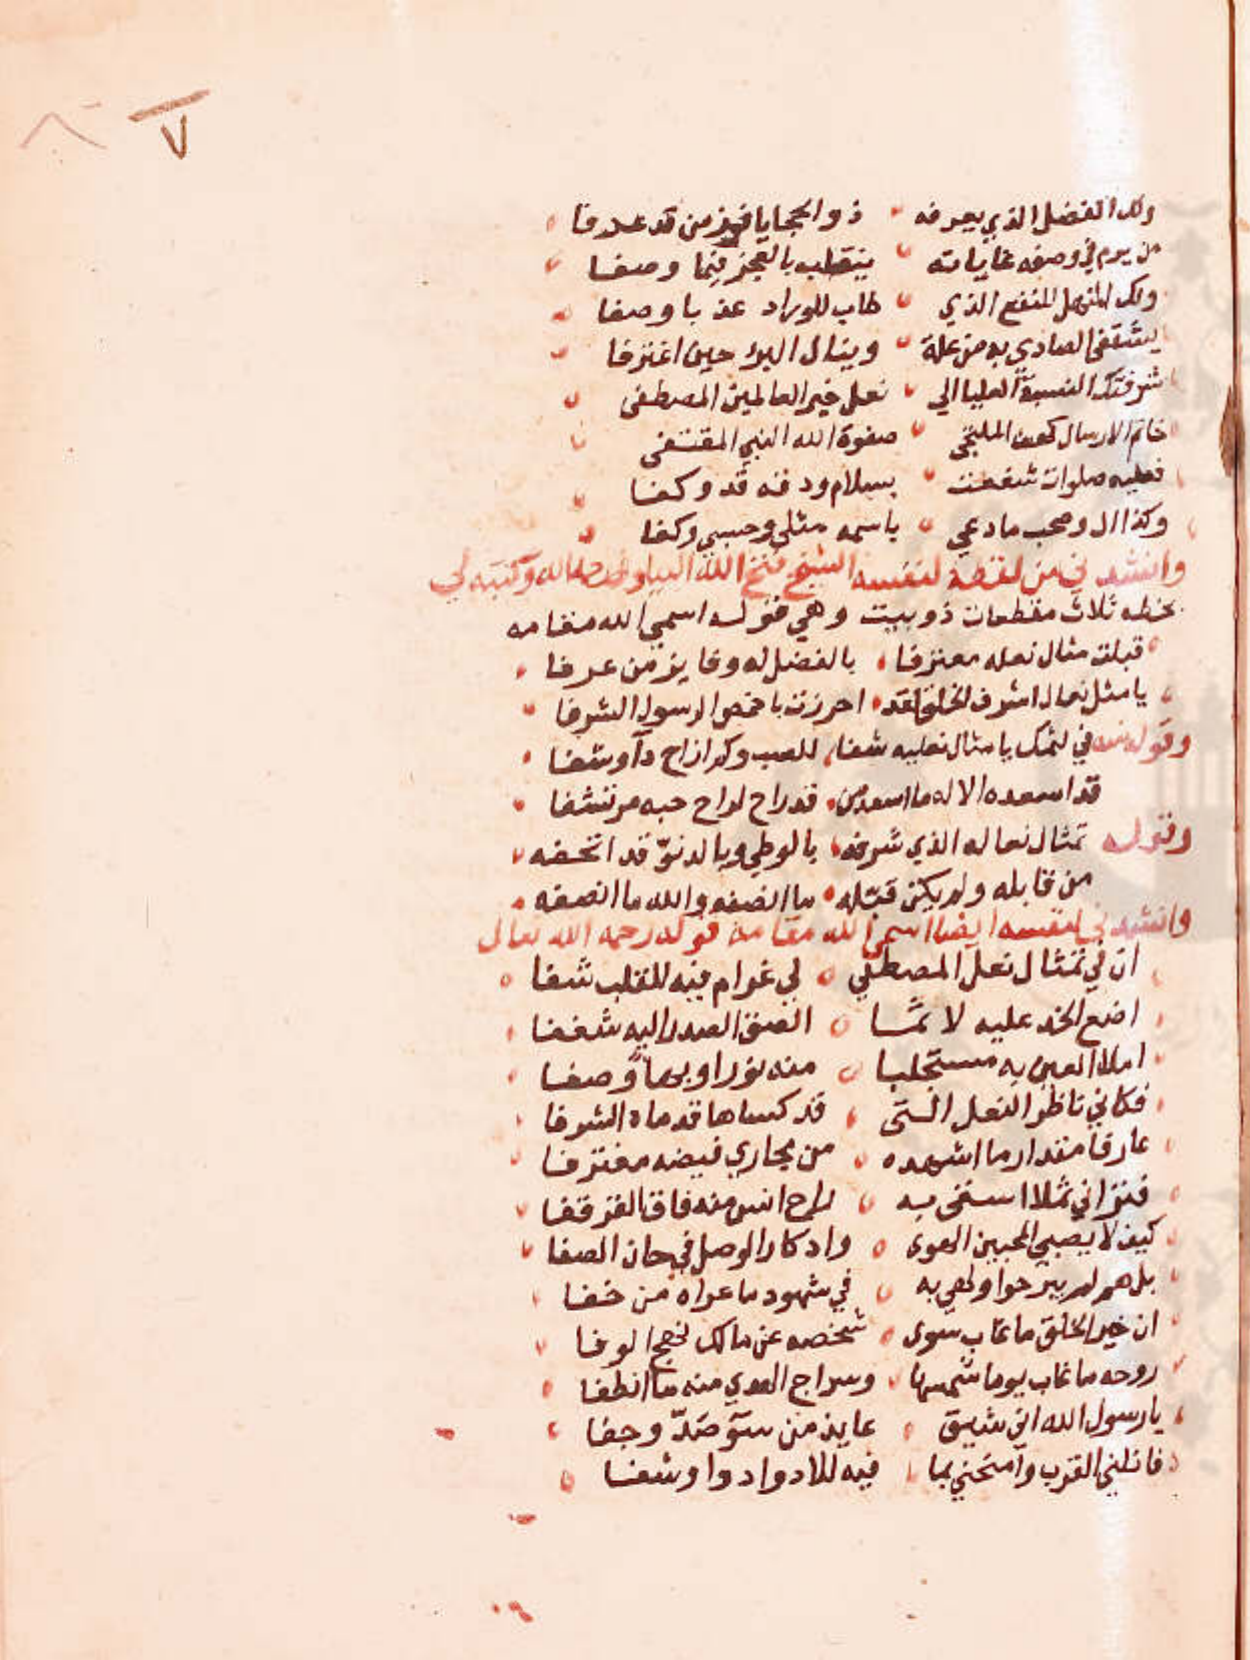 ٧ ٨
ولك الفضل الذي يعرفه ذو الحجا يا فوز من قد عرفا
من يرم في وصفه غاياته ينقلب بالعجز فيما وصفا
ولك المنهل للنفع الذي طاب للوراد عذبا وصفا
يشتفي الصادي به من علة وينال البرء حين اغترفا
شرفتك النسبة العليا الي نعل خير العالمين المصطفى
خاتم الارسال كهف الملتجى صفوة الله النبي المقتفى
فعليه صلوات شفعت بسلام ودقه قد وكفا
وكذا ال وصحب ما دعي باسمه مثلي وحسبي وكفا
وانشدني من لفظه لنفسه الشيخ فتح الله البيلوني رحمه الله وكتبه لي
بخطه ثلاث مقطعات ذو بيت وهي قوله اسمى الله مقامه
قبلت مثال نعله معترفا بالفضل له وفايز من عرفا
يا مثل نعال اشرف الخلق لقد احرزت باخمص الرسول الشرفا
وقوله في لثمك يا مثال نعليه شفا للصب وكم ازاح دآ وشفا
قد اسعده الاله ما اسعد من قد راح لراح حبه مرتشفا
وقوله تمثال نعاله الذي شرفه بالوطي وبالدنوّ قد اتحفه
من قابله ولم يكن قبّله ما انصفه والله ما انصفه
وانشدني لنفسه ايضا اسمى الله مقامه قوله رحمه الله تعالى
ان لي تمثال نعل المصطفى لي غرام فيه للقلب شفا
اضع الخد عليه لاثمًا الصق الصدر اليه شغفا
املا العين به مستجلبا منه نورا وبهآ وصفا
فكاني ناظر النعل التى قد كساها قدماه الشرفا
عارفا مقدار ما اشهده من مجاري فيضه مغترفا
فتراني ثملا استفى به راح انس منه فاق القرقفا
كيف لا يصبي المحبين الهوى وادكار الوصل في حان الصفا
بل هم لم يبرحوا ولهي به في شهود ما عراه من خفا
ان خير الخلق ما غاب سوى شخصه عن مالك نهج الوفا
روحه ما غاب يوما شمسها وسراج الهدي منه ما انطفا
يا رسول الله اني شيق عايذ من سوٓ صدّ وجفا
فانلني القرب وامنحني بما فيه للادواد وا وشفا